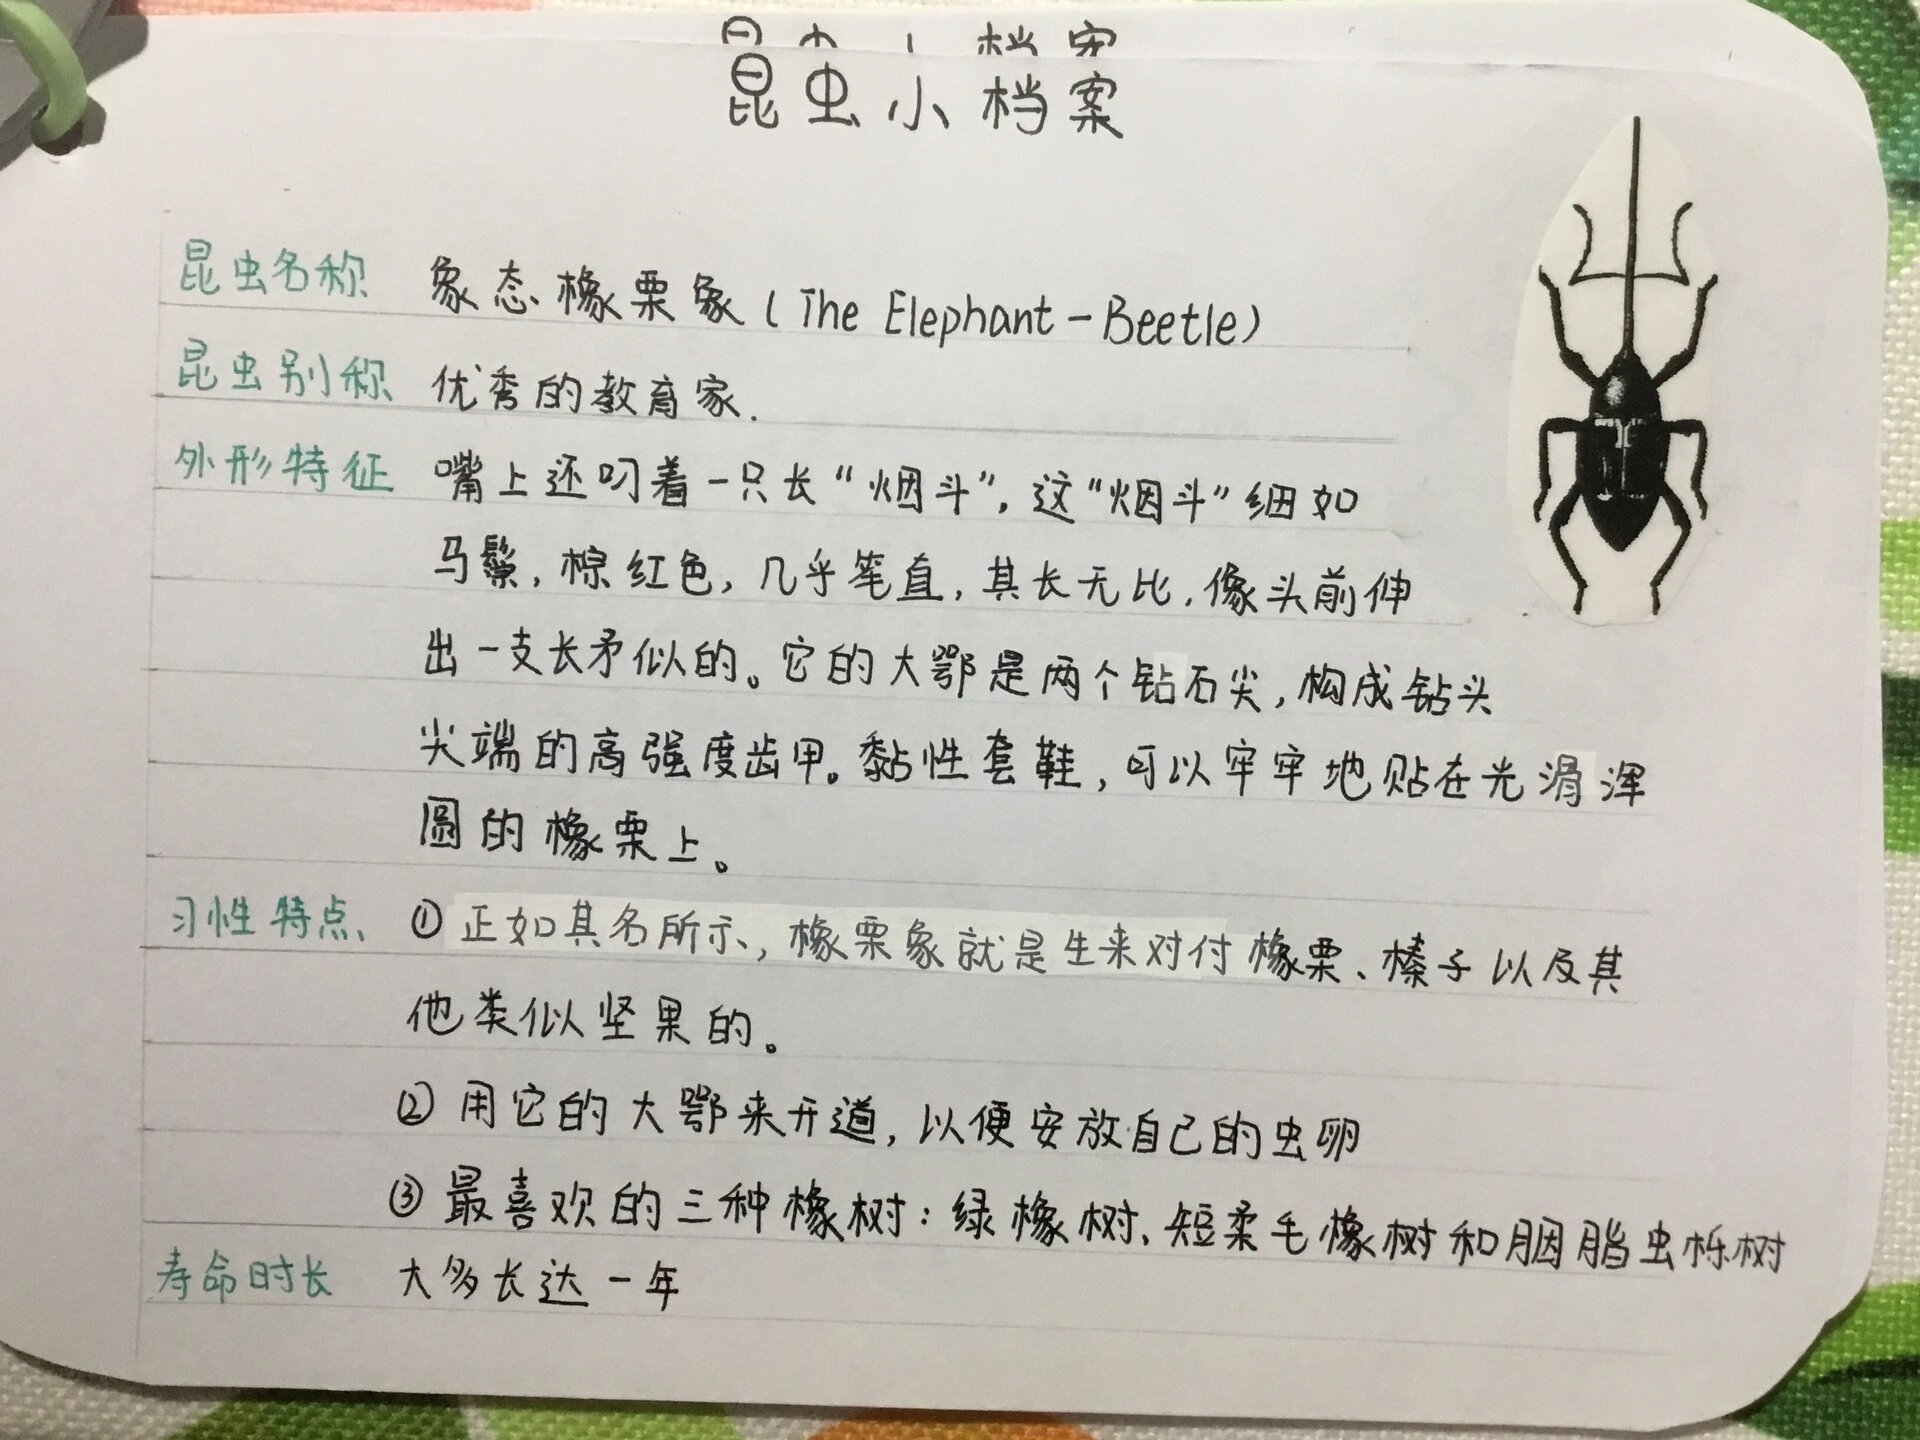 昆虫小档案
昆虫名称 象态橡栗象(The Elephant-Beetle)
昆虫别称 优秀的教育家.
外形特征 嘴上还叼着一只长“烟斗”,这“烟斗”细如
马鬃,棕红色,几乎笔直,其长无比,像头前伸
出一支长矛似的。它的大鄂是两个钻石尖,构成钻头
尖端的高强度齿甲。黏性套鞋,可以牢牢地贴在光滑浑
圆的橡栗上。
习性特点、 ①正如其名所示,橡栗象就是生来对付橡栗、榛子以及其
他类似坚果的。
②用它的大鄂来开道,以便安放自己的虫卵
③最喜欢的三种橡树:绿橡树、短柔毛橡树和胭脂虫栎树
寿命时长 大多长达一年